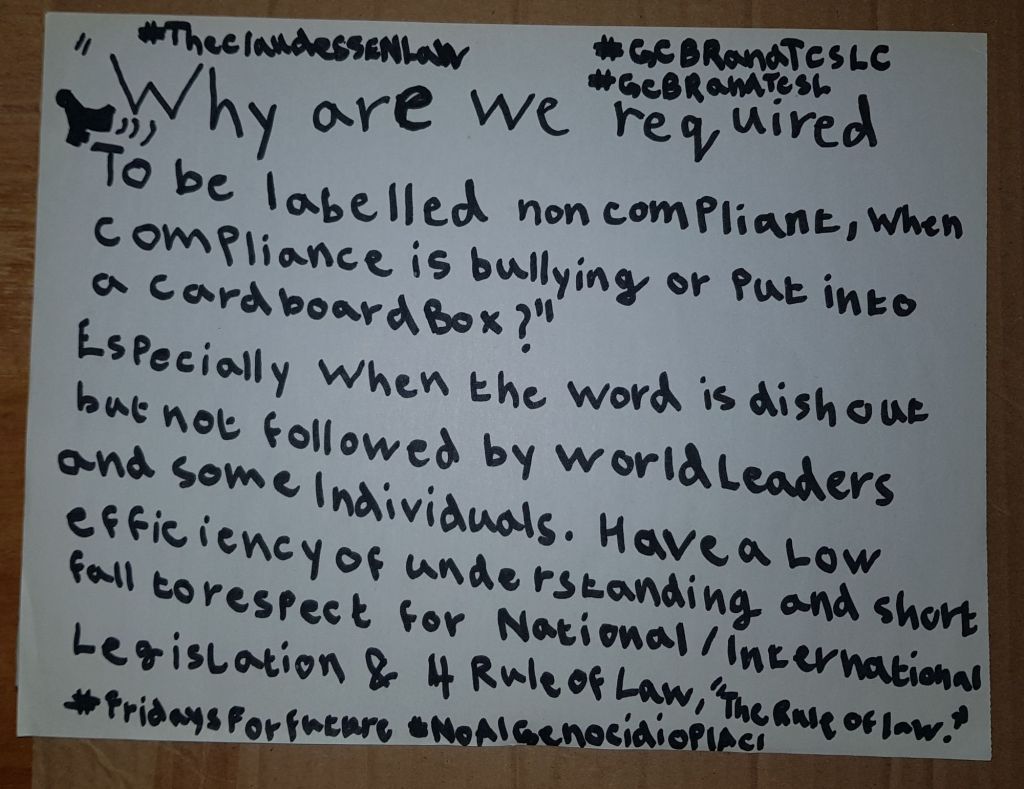 " #TheClaudesSENLaw #GCBRandTCSLC
#GCBRandTCSL
Why are we required
To be labelled non compliant, when
compliance is bullying or put into
a cardboard Box?"
Especially when the word is dish out
but not followed by world Leaders
and some Individuals. Have a Low
efficiency of understanding and short
fall to respect for National/International
Legislation & 4 Rule of Law, "The Rule of law."
#FridaysForFuture #NoAlGenocidioPlAci